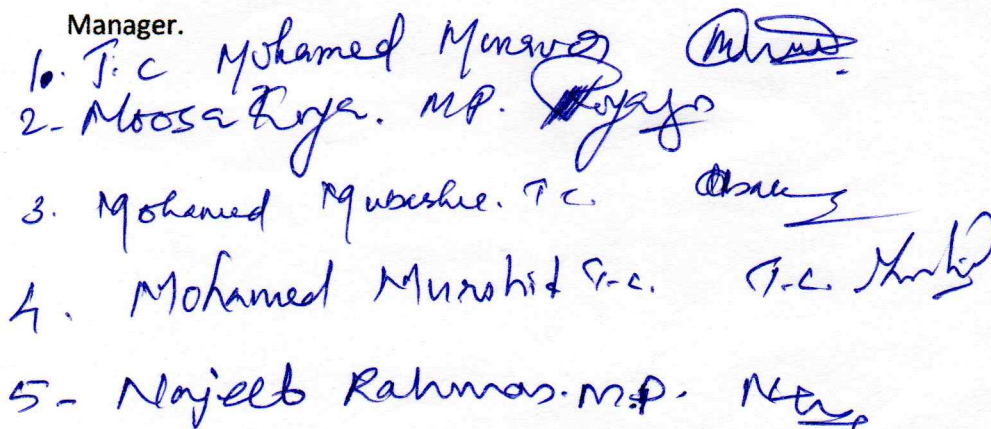 Manager.
1. T.C Mohamed Munavar
2- Moosa Koya. M.P. Koya
3. Mohamed Mubeshir. T.C.
4. Mohamed Murshid T.C. T.C.
5- Najeeb Rahman. M.P.